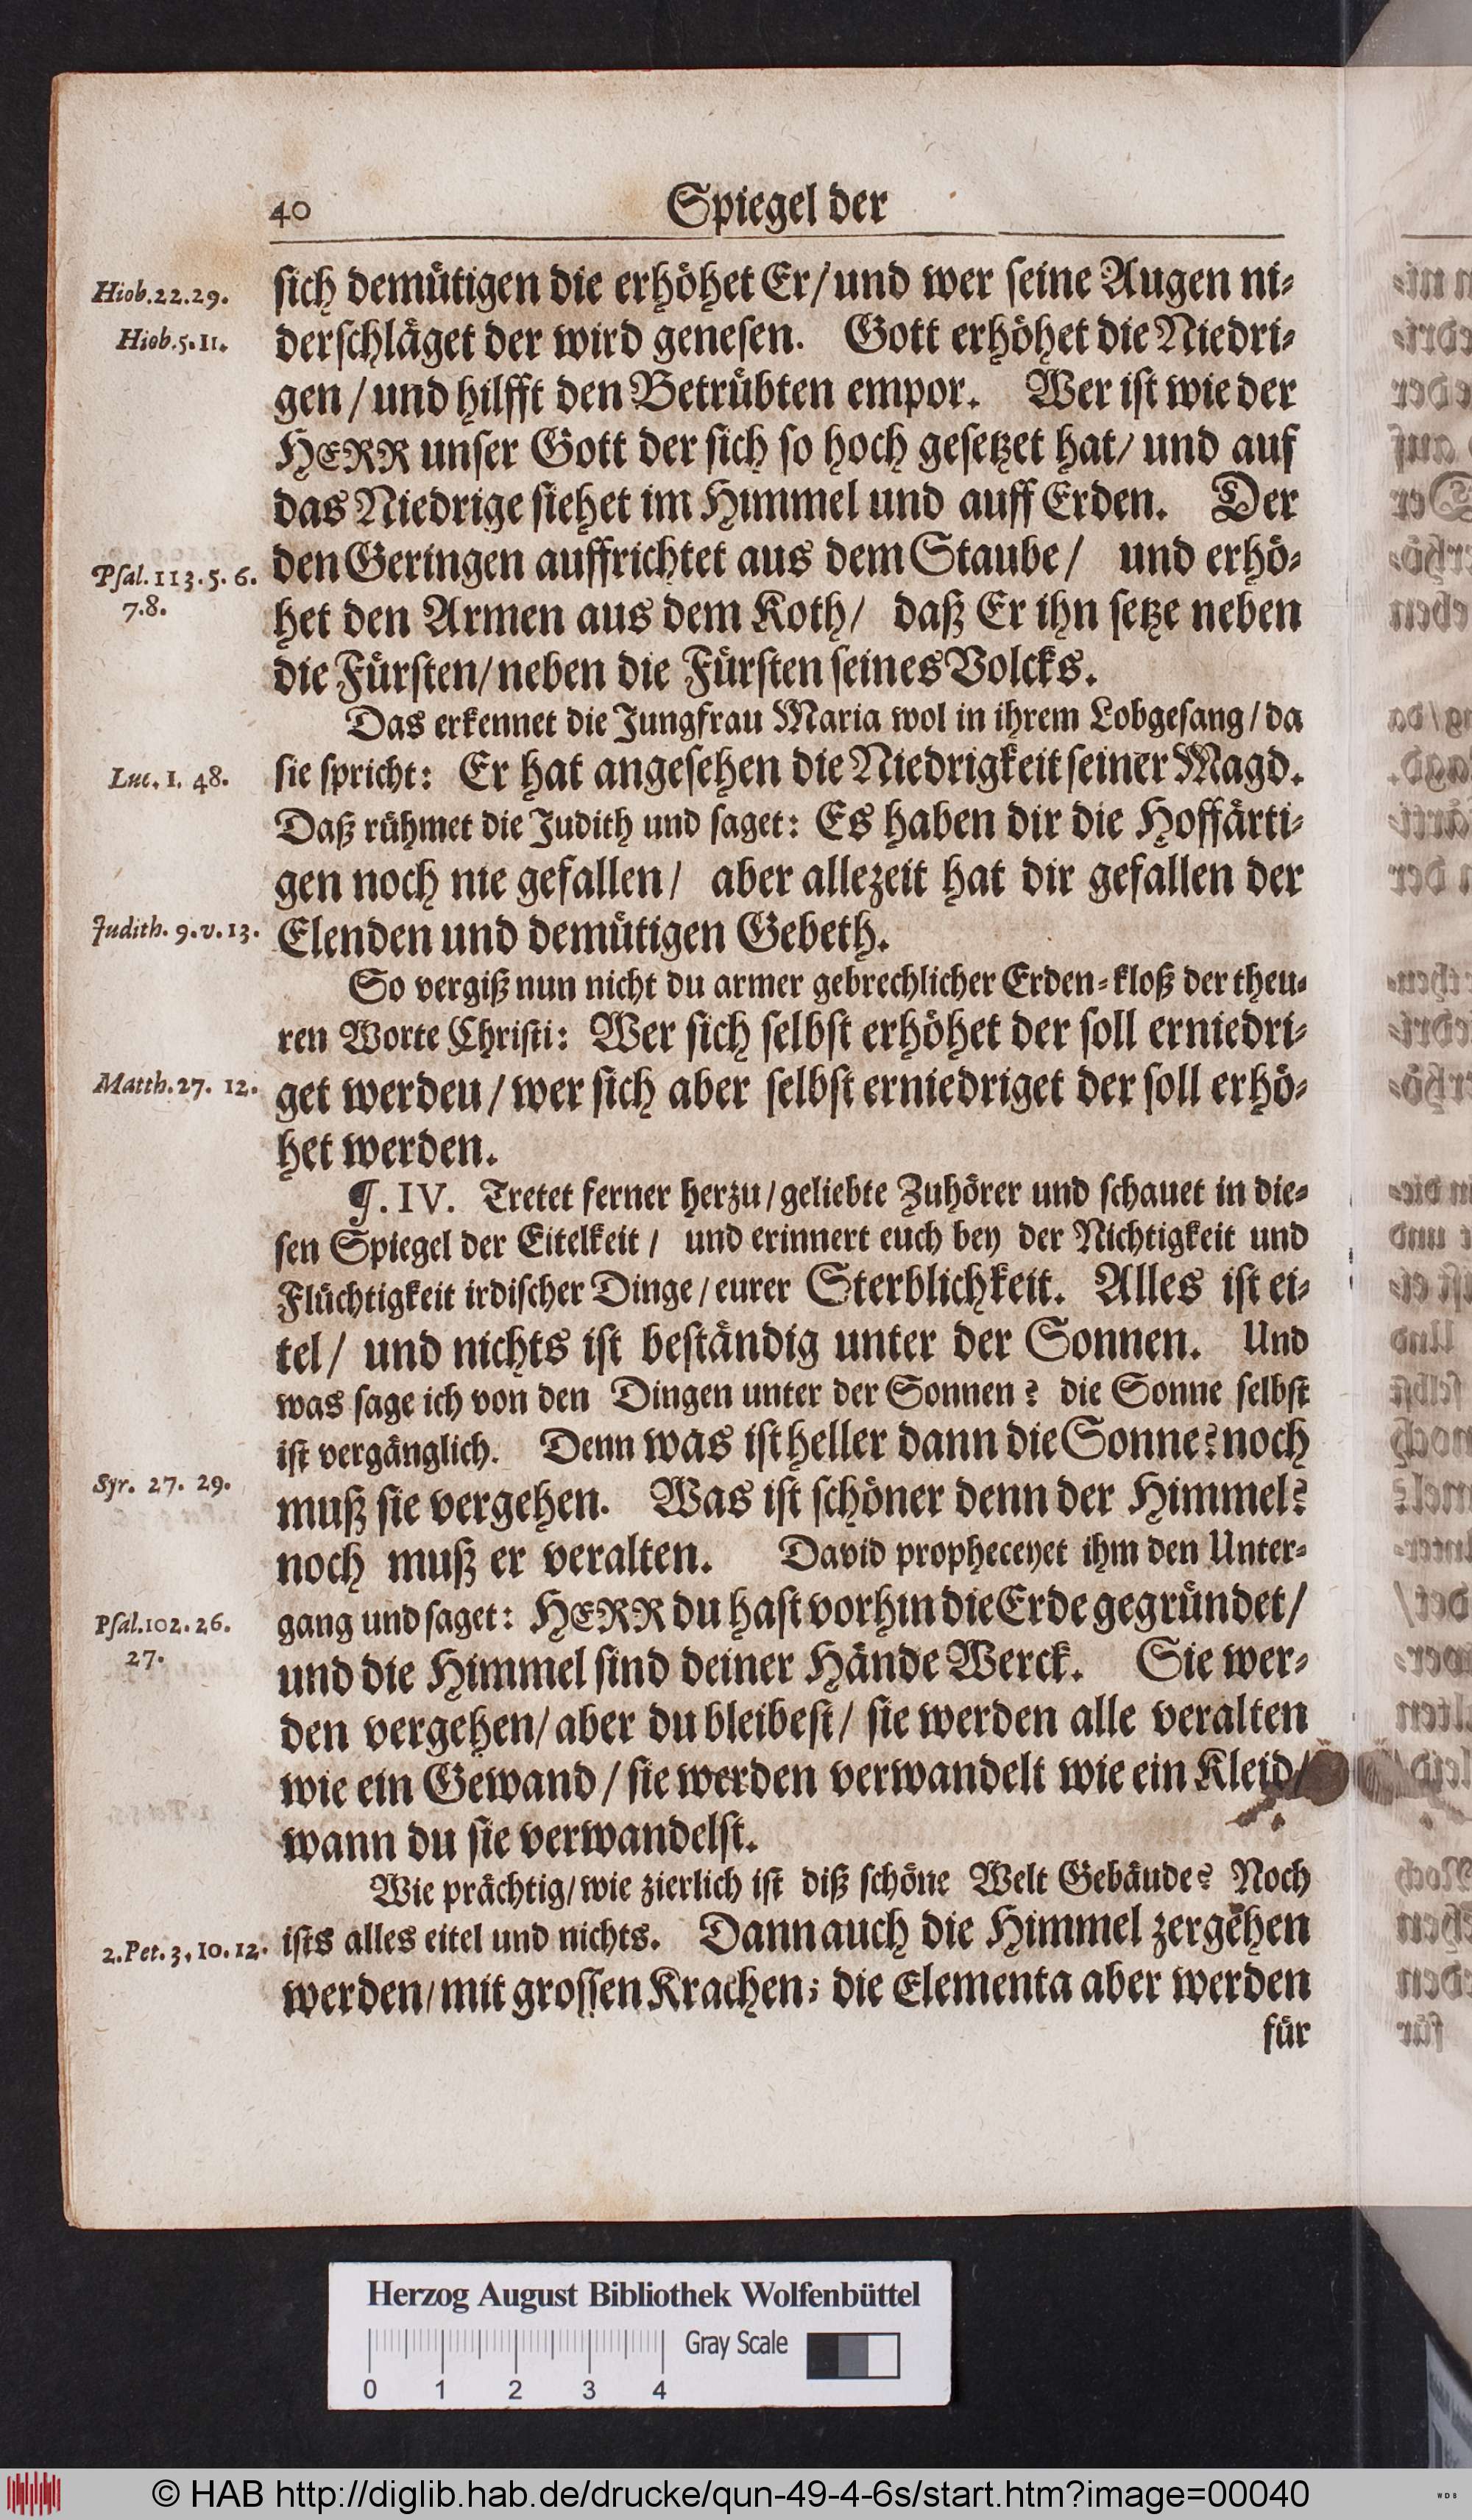 40 Spiegel der
Hiob.22.29. sich demütigen die erhöhet Er/und wer seine Augen ni-
Hiob.5.11. derschläget der wird genesen. Gott erhöhet die Niedri-
gen/und hilfft den Betrübten empor. Wer ist wie der
HERR unser Gott der sich so hoch gesetzet hat/ und auf
das Niedrige siehet im Himmel und auff Erden. Der
Psal.113.5.6. den Geringen auffrichtet aus dem Staube/ und erhö-
7.8. het den Armen aus dem Koth/ daß Er ihn setze neben
die Fürsten/neben die Fürsten seines Volcks.
Das erkennet die Jungfrau Maria wol in ihrem Lobgesang/da
Luc. 1. 48. sie spricht: Er hat angesehen die Niedrigkeit seiner Magd.
Daß rühmet die Judith und saget: Es haben dir die Hoffärti-
gen noch nie gefallen/ aber allezeit hat dir gefallen der
Judith. 9.v.13. Elenden und demütigen Gebeth.
So vergiß nun nicht du armer gebrechlicher Erden-kloß der theu-
ren Worte Christi: Wer sich selbst erhöhet der soll erniedri-
Matth.27. 12. get werdeu/wer sich aber selbst erniedriget der soll erhö-
het werden.
¶. IV. Tretet ferner herzu/geliebte Zuhörer und schauet in die-
sen Spiegel der Eitelkeit/ und erinnert euch bey der Nichtigkeit und
Flüchtigkeit irdischer Dinge/eurer Sterblichkeit. Alles ist ei-
tel/ und nichts ist beständig unter der Sonnen. Und
was sage ich von den Dingen unter der Sonnen? die Sonne selbst
ist vergänglich. Denn was ist heller dann die Sonne? noch
Syr. 27. 29. muß sie vergehen. Was ist schöner denn der Himmel?
noch muß er veralten. David propheceyet ihm den Unter-
Psal.102.26. gang und saget: HERR du hast vorhin die Erde gegründet/
27. und die Himmel sind deiner Hände Werck. Sie wer-
den vergehen/aber du bleibest/ sie werden alle veralten
wie ein Gewand/sie werden verwandelt wie ein Kleid/
wann du sie verwandelst.
Wie prächtig/wie zierlich ist diß schöne Welt Gebäude? Noch
2.Pet.3,10.12. ists alles eitel und nichts. Dann auch die Himmel zergehen
werden/mit grossen Krachen; die Elementa aber werden
für
Herzog August Bibliothek Wolfenbüttel
Gray Scale
0 1 2 3 4
© HAB http://diglib.hab.de/drucke/qun-49-4-6s/start.htm?image=00040